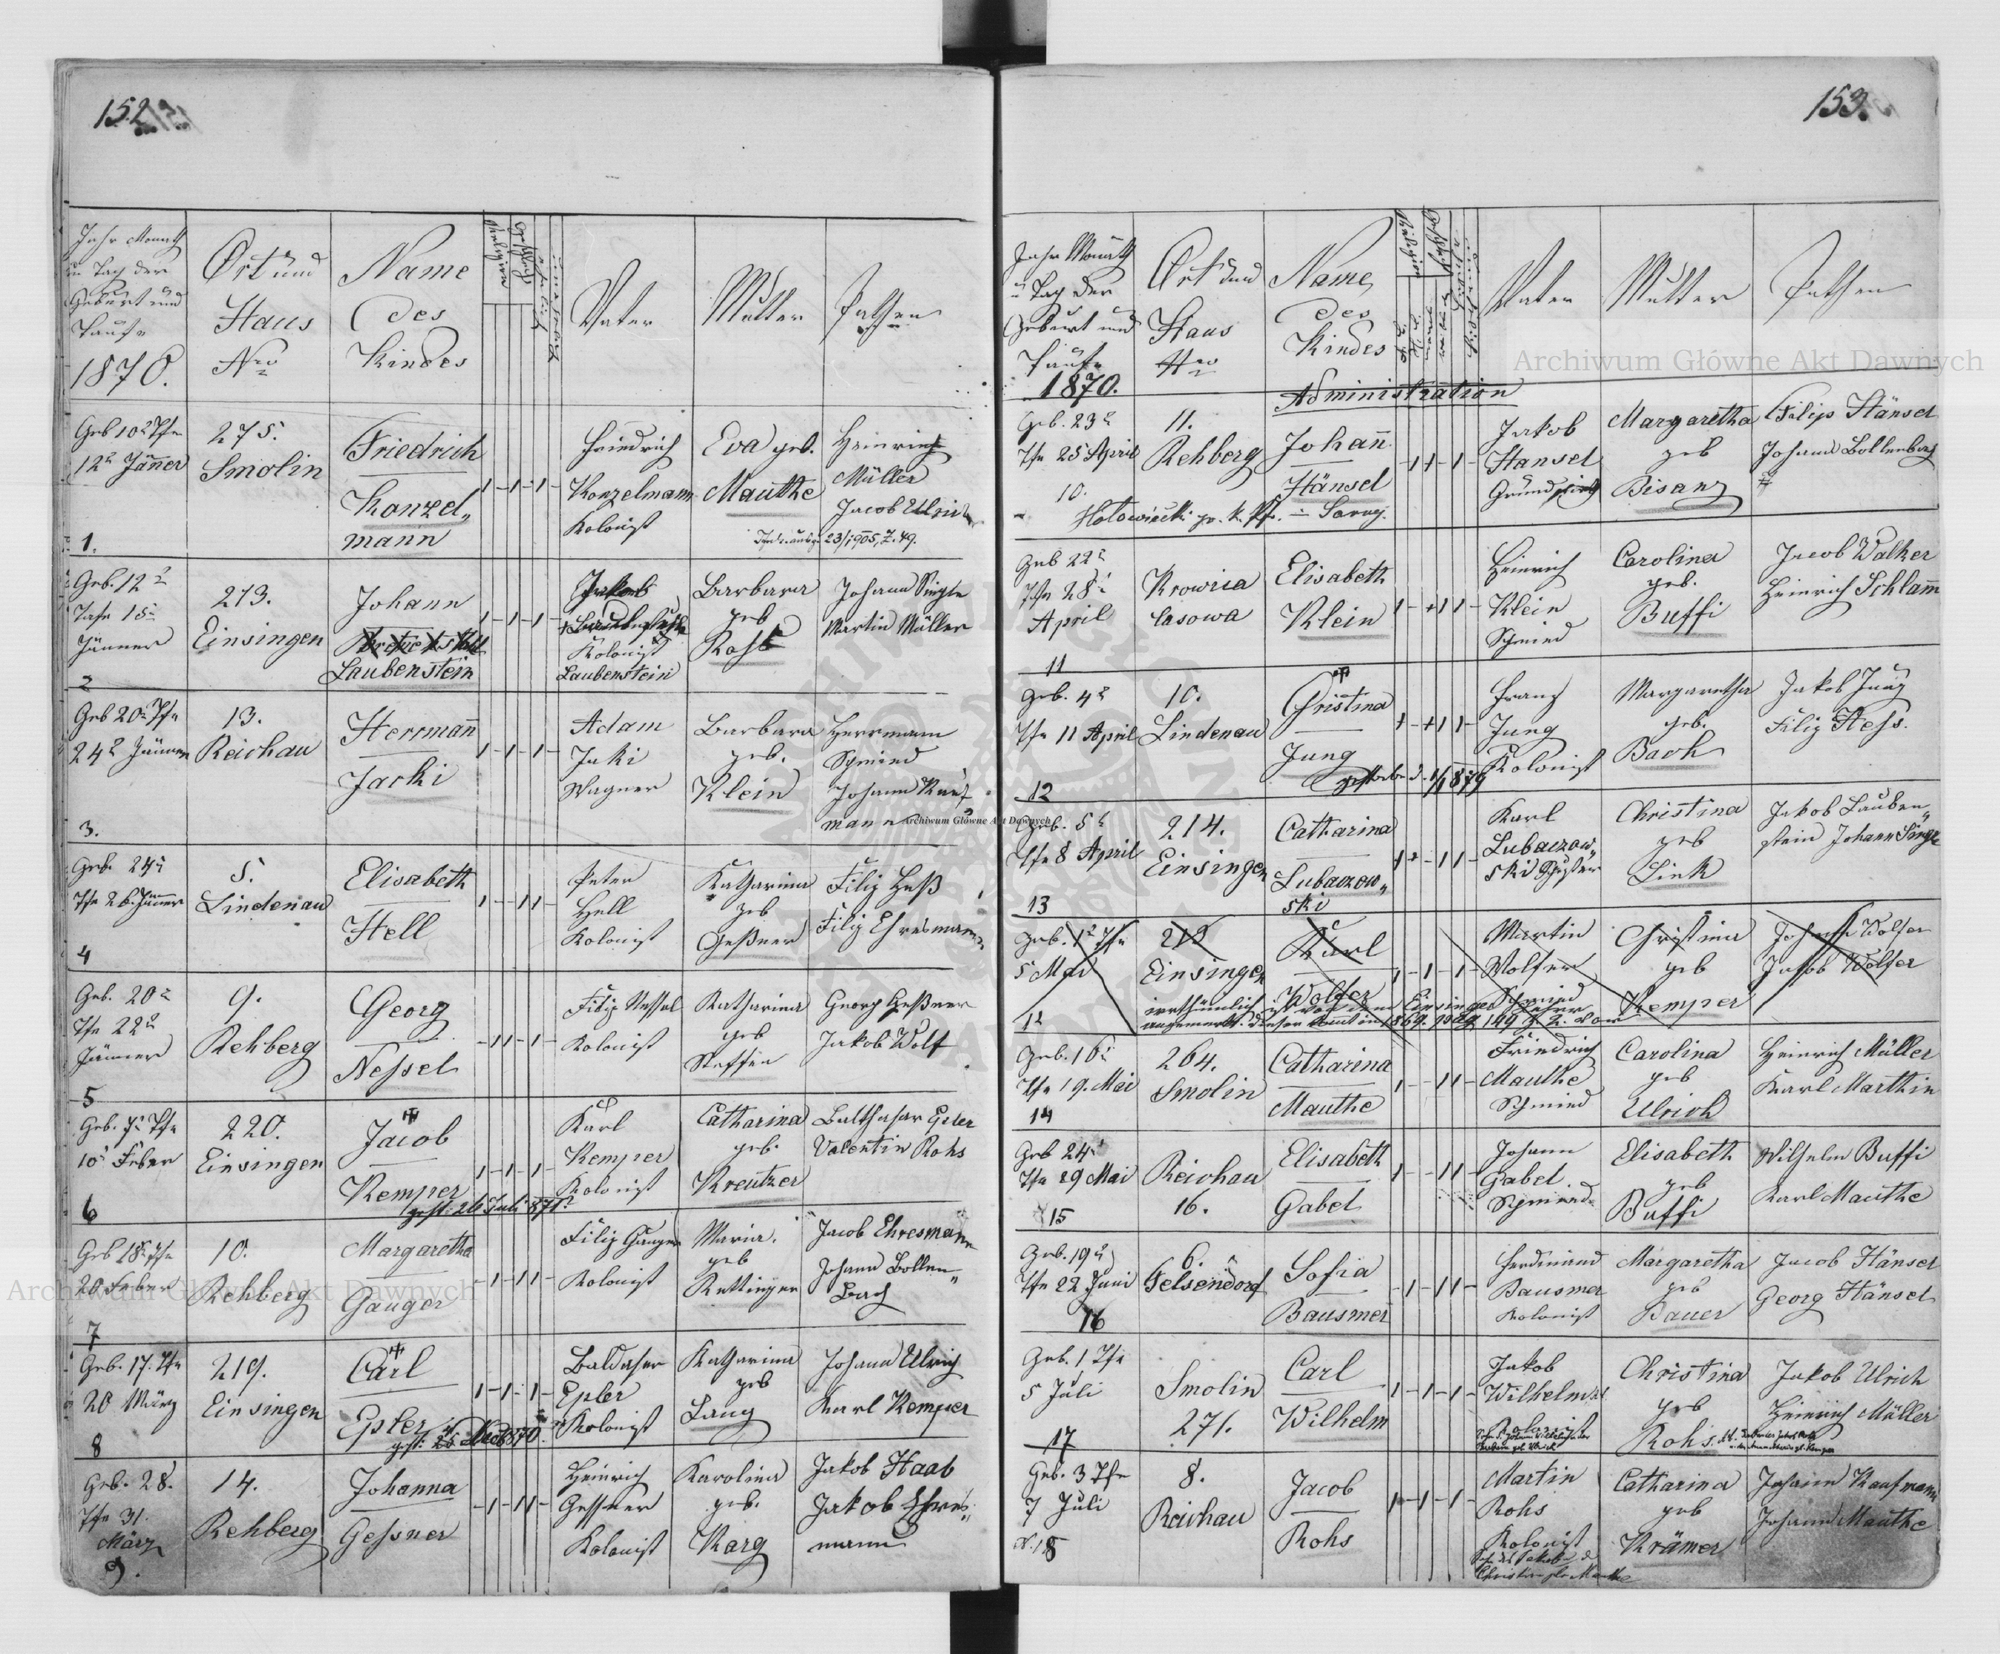 152
Jahr Monath
u Tag der
Geburt und
Taufe
1870.
Ort und
Haus
Nro
Name
des
Kindes
Vater
Mutter
Pathen
Geb 10 Tfe
12 Jänner
1.
275.
Smolin
Friedrich
Konzel„
mann
Friedrich
Konzelmann
Kolonist
Eva geb.
Mauthe
Heinrich
Müller
Jacob Ulrich
23/1905, Z. 49.
Geb. 12
Tafe 15
Jänner
2
213.
Einsingen
Johann
Laubenstein
Jakob
Kolonist
Laubenstein
Barbara
geb
Rohs
Johann
Martin Müller
Geb 20 Tfe
24 Jänner
3.
13.
Reichau
Herrmann
Jacki
Adam
Jaki
Wagner
Barbara
geb.
Klein
Herrmann
Schmied
Johann Kauf
mann
Geb. 24
Tfe 26. Jänner
4
5.
Lindenau
Elisabeth
Hell
Peter
Hell
Kolonist
Katharina
geb
Geßner
Filip Heß
Filip Ehresmann
Geb. 20
Tfe 22
Jänner
5
9.
Rehberg
Georg
Nessel
Filip Nessel
Kolonist
Katharina
geb
Steffen
Georg Geßner
Jakob Wolf
Geb. 7 Tfe
10 Feber
6
220.
Einsingen
Jacob
Kemper
gest. 26 Juli 871
Karl
Kemper
Kolonist
Catharina
geb.
Kreutzer
Balthasar Epler
Valentin Rohs
Geb 18 Tfe
20 Feber
7
10.
Rehberg
Margaretha
Gauger
Filip Gauger
Kolonist
Maria
geb
Rettinger
Jacob Ehresmann
Johann Bollen„
bach
Geb. 17. Tfe
20 März
8
219.
Einsingen
Carl
Epler
Baldaser
Epler
Kolonist
Katharina
geb
Lang
Johann Ulrich
Karl Kemper
Geb. 28.
Tfe 31.
März
9.
14.
Rehberg
Johanna
Gessner
Heinrich
Gessner
Kolonist
Karolina
geb.
Karg
Jakob Haab
Jakob Ehres„
mann
153.
Jahr Monath
u Tag der
Geburt und
Taufe
1870.
Ort und
Haus
Nro
Name
des
Kindes
Vater
Mutter
Pathen
Administration
Geb. 23
Tfe 25 April
10.
11.
Rehberg
Johann
Hänsel
Jakob
Hansel
Margaretha
geb
Bisanz
Filip Hänsel
Johann Bollenbach
Geb 22
Tfe 28
April
11
Krowica
Lasowa
Elisabeth
Klein
Heinrich
Klein
Schmied
Carolina
geb.
Buffi
Jacob Walker
Heinrich Schlamm
Geb. 4
Tfe 11 April
12
10.
Lindenau
Christina
Jung
Franz
Jung
Kolonist
Margaretha
geb.
Bach
Jakob Jung
Filip Hess.
Geb. 5
Tfe 8 April
13
214.
Einsingen
Catharina
Lubaczow„
ski
Karl
Lubaczow„
ski
Christina
geb
Fink
Jakob Lauben„
stein Johann
Geb. 1 Tfe
5 Mai
212
Einsingen
Karl
Wolfer
Martin
Wolfer
Schmied
Christina
geb
Kemper
Wolfer
Jakob Wolfer
Geb. 16
Tfe 19. Mai
14
264.
Smolin
Catharina
Mauthe
Friedrich
Mauthe
Schmied
Carolina
geb
Ulrich
Heinrich Müller
Karl Marthin
Geb 24
Tfe 29 Mai
15
Reichau
16.
Elisabeth
Gabel
Johann
Gabel.
Schmied
Elisabeth
geb
Buffi
Wilhelm Buffi
Karl Mauthe
Geb. 19
Tfe 22 Juni
16
6.
Felsendorf
Sofia
Bausmer
Ferdinand
Bausmer
Kolonist
Margaretha
geb
Bauer
Jacob Hänsel
Georg Hänsel
Geb. 1 Tfe
5 Juli
17
Smolin
271.
Carl
Wilhelm
Jakob
Wilhelm
Kolonist
Christina
geb
Rohs
Jakob Ulrich
Heinrich Müller
Geb. 3 Tfe
7 Juli
18
8.
Reichau
Jacob
Rohs
Martin
Rohs
Kolonist
Catharina
geb
Krämer
Johann Kaufmann
Johann Mauthe
Archiwum Główne Akt Dawnych
Archiwum Główne Akt Dawnych
Archiwum Główne Akt Dawnych